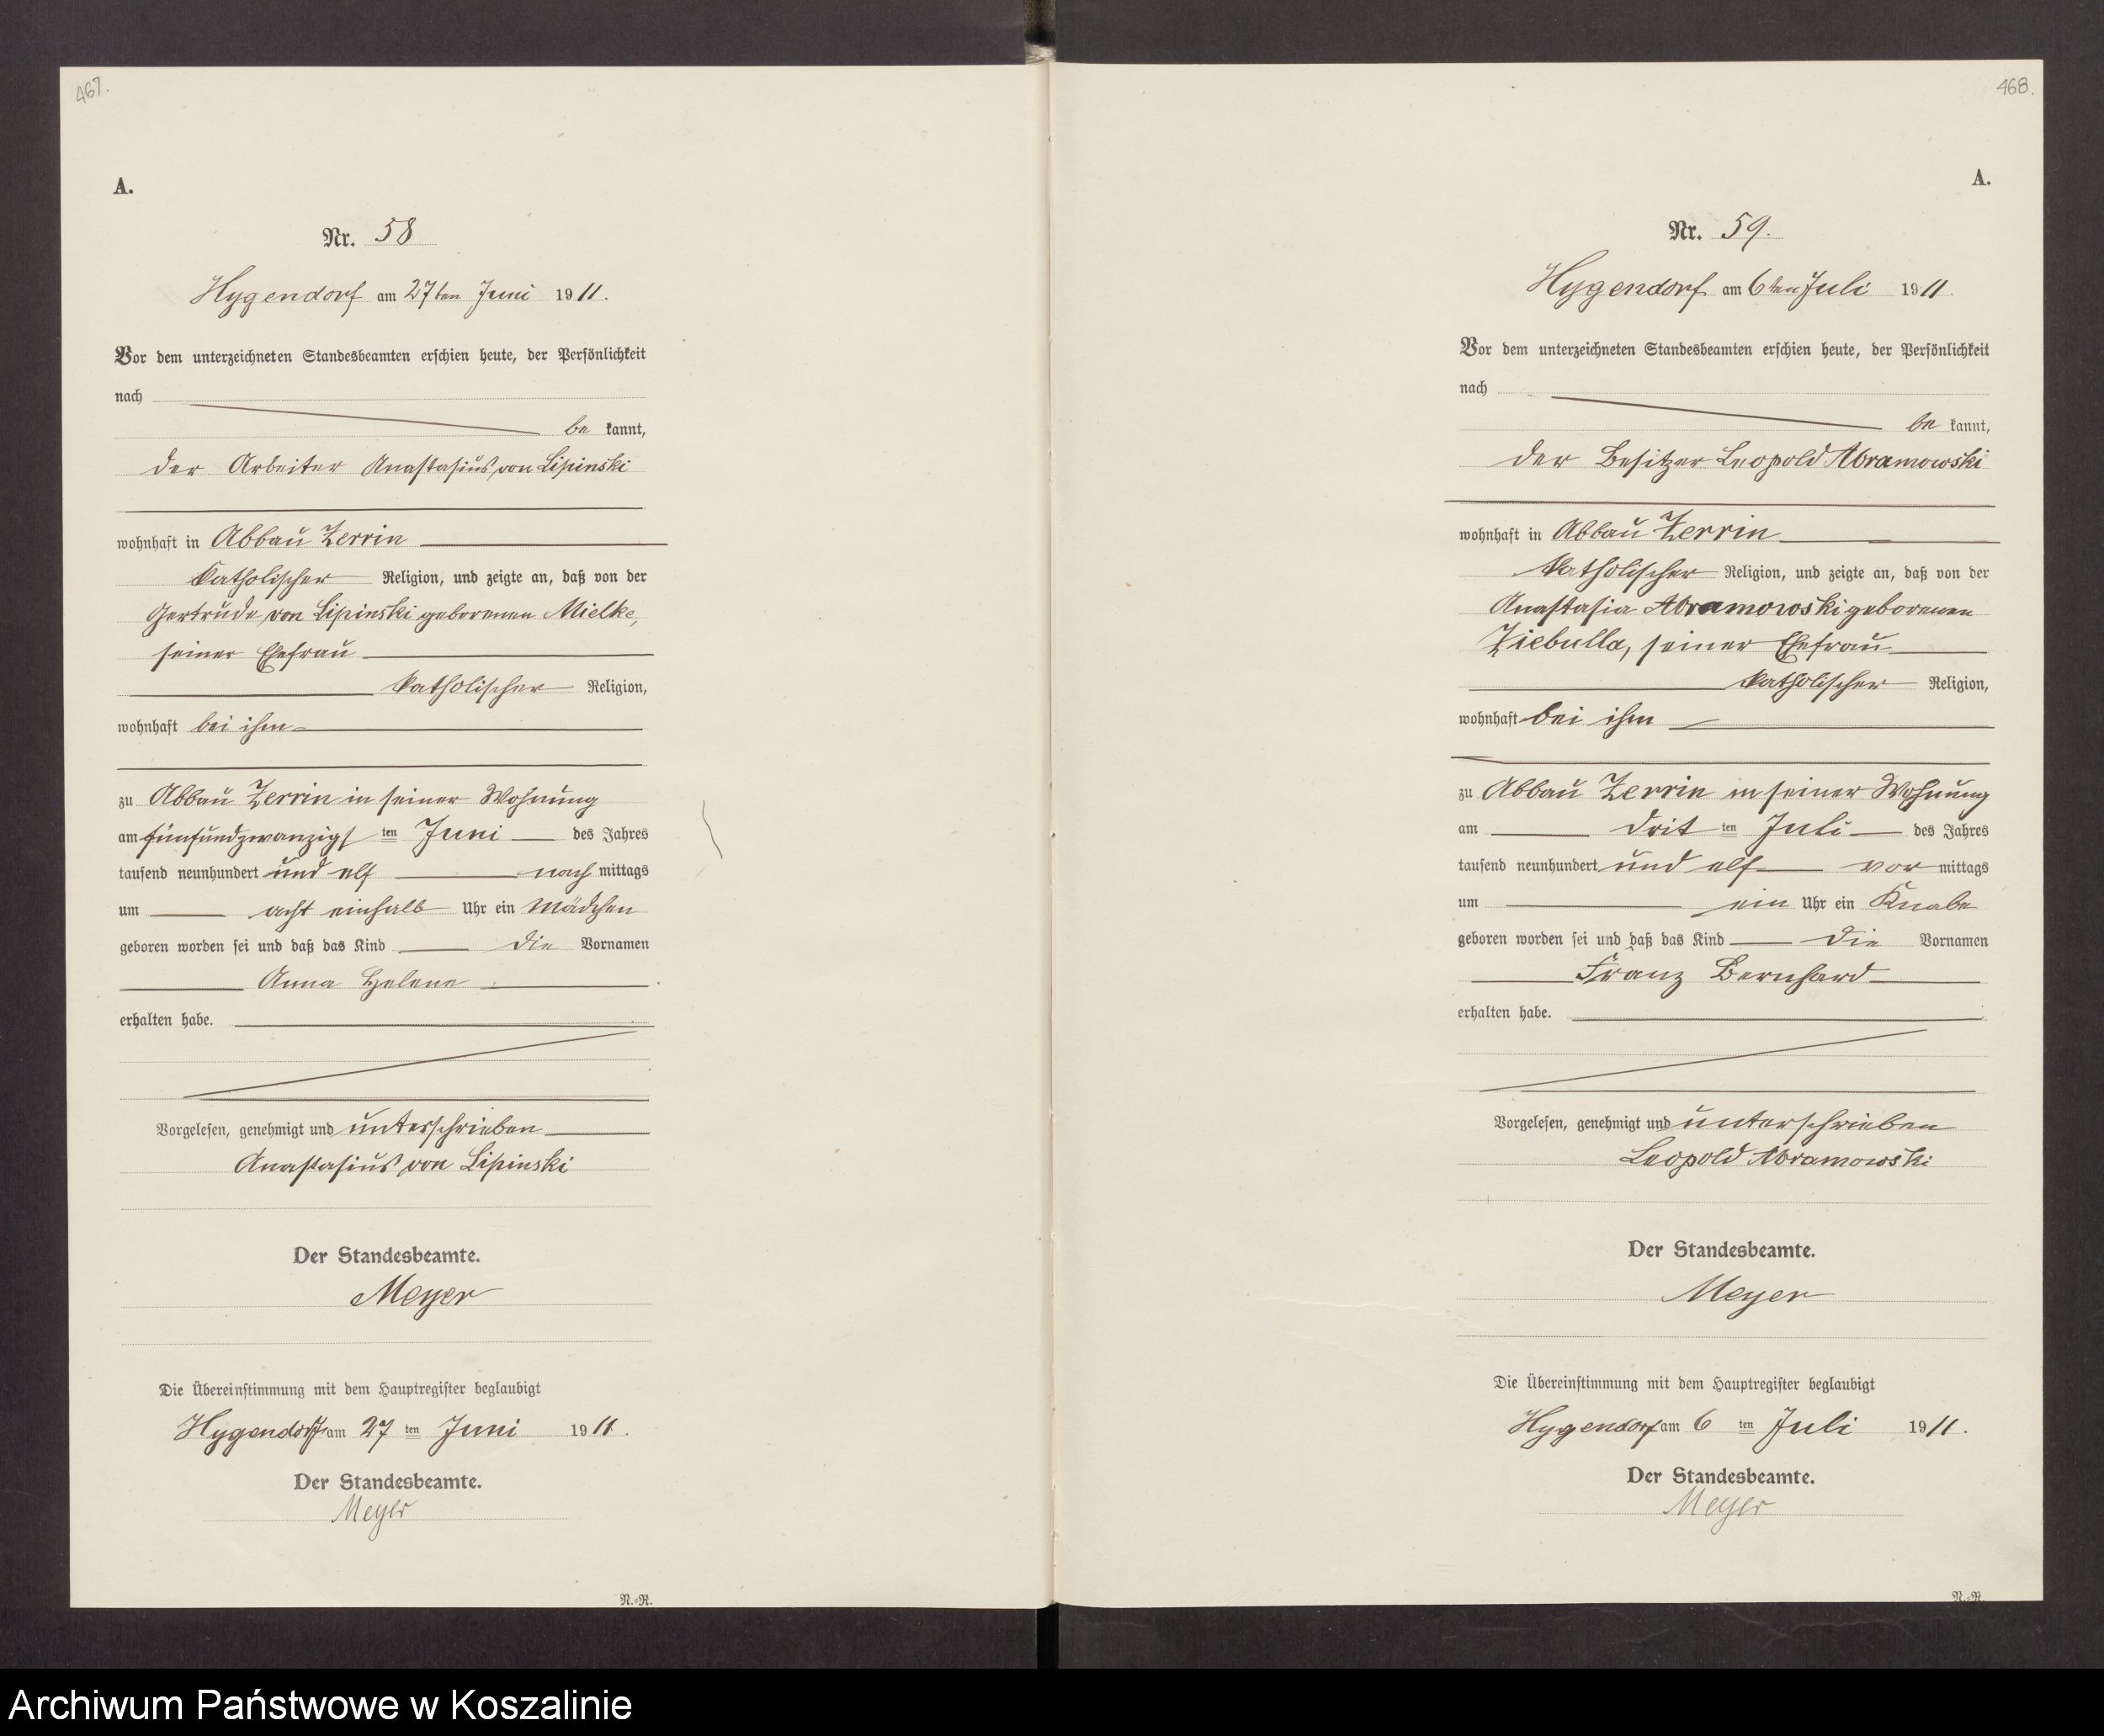 467.
A.
Nr. 58
Hygendorf am 27ten Juni 1911.
Vor dem unterzeichneten Standesbeamten erschien heute, der Persönlichkeit
nach
be kannt,
der Arbeiter Anastasius von Lipinski
wohnhaft in Abbau Zerrin
katholischer Religion, und zeigte an, daß von der
Gertrude von Lipinski geborenen Mielke,
seiner Ehefrau
katholischer Religion,
wohnhaft bei ihm
zu Abbau Zerrin in seiner Wohnung
am fünfundzwanzigs ten Juni des Jahres
tausend neunhundert und elf nach mittags
um acht einhalb Uhr ein Mädchen
geboren worden sei und daß das Kind die Vornamen
Anna Helene
erhalten habe.
Vorgelesen, genehmigt und unterschrieben
Anastasius von Lipinski
Der Standesbeamte.
Meyer
Die Übereinstimmung mit dem Hauptregister beglaubigt
Hygendorf am 27 ten Juni 1911.
Der Standesbeamte.
Meyer
N.-R.
468.
A.
Nr. 59.
Hygendorf am 6ten Juli 1911.
Vor dem unterzeichneten Standesbeamten erschien heute, der Persönlichkeit
nach
be kannt,
der Besitzer Leopold Abramowski
wohnhaft in Abbau Zerrin
katholischer Religion, und zeigte an, daß von der
Anastasia Abramowski geborenen
Ziebulla, seiner Ehefrau
katholischer Religion,
wohnhaft bei ihm
zu Abbau Zerrin in seiner Wohnung
am drit ten Juli des Jahres
tausend neunhundert und elf vor mittags
um ein Uhr ein Knabe
geboren worden sei und daß das Kind die Vornamen
Franz Bernhard
erhalten habe.
Vorgelesen, genehmigt und unterschrieben
Leopold Abramowski
Der Standesbeamte.
Meyer
Die Übereinstimmung mit dem Hauptregister beglaubigt
Hygendorf am 6 ten Juli 1911.
Der Standesbeamte.
Meyer
N.-R.
Archiwum Państwowe w Koszalinie